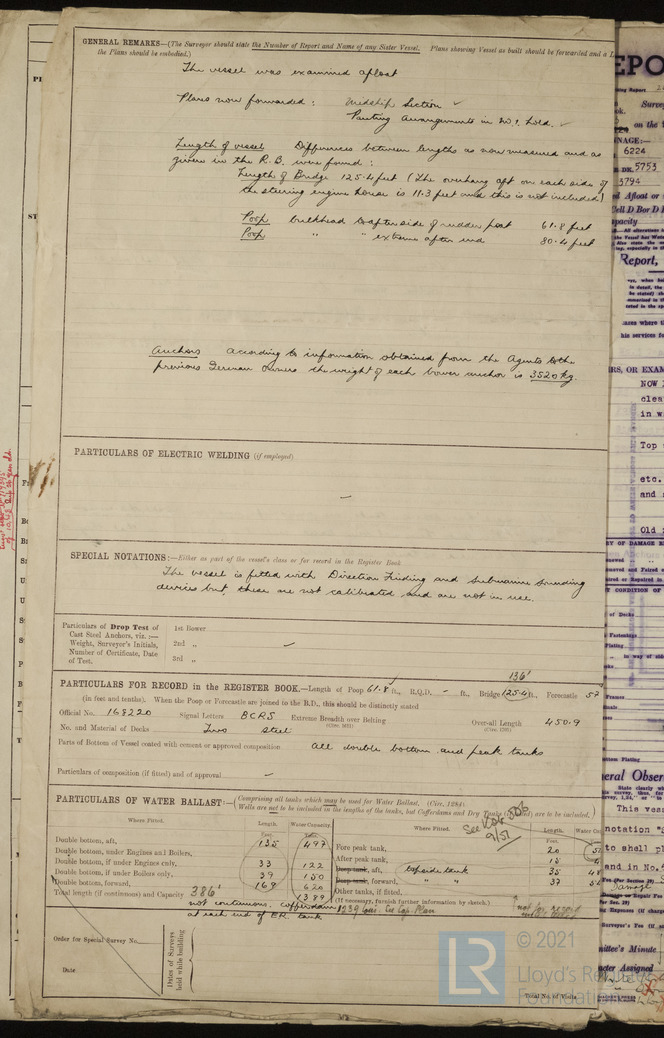 GENERAL REMARKS—(The Surveyor should state the Number of Report and Name of any Sister Vessel. Plans showing Vessel as built should be forwarded and a L
the Plans should be embodied.)
The vessel was examined afloat
Plans now forwarded: Midship Section ✓
Panting Arrangements in No. 1. hold. ✓
Length of vessel Differences between lengths as now measured and as
given in the R.B. were found:
Length of Bridge 125.4 feet (The overhang aft on each side of
the steering engine house is 11.3 feet and this is not included)
Poop bulkhead to after side of rudder post 61.8 feet
Poop " " " extreme after end 80.4 feet
Anchors according to information obtained from the Agents to the
previous German Owners the weight of each bower anchor is 3520 kg.
PARTICULARS OF ELECTRIC WELDING (if employed)
—
SPECIAL NOTATIONS:—Either as part of the vessel's class or for record in the Register Book
The vessel is fitted with Direction Finding and submarine sounding
devices but these are not calibrated and are not in use.
Particulars of Drop Test of
Cast Steel Anchors, viz.:—
Weight, Surveyor's Initials,
Number of Certificate, Date
of Test.
1st Bower
2nd „
3rd „
136'
PARTICULARS FOR RECORD in the REGISTER BOOK.—Length of Poop 61.8 ft., R.Q.D. - ft., Bridge 125.4 ft., Forecastle 52
(in feet and tenths). When the Poop or Forecastle are joined to the B.D., this should be distinctly stated
Official No. 168220 Signal Letters BCRS Extreme Breadth over Belting Over-all Length 450.9
No. and Material of Decks Two steel
Parts of Bottom of Vessel coated with cement or approved composition All double bottom and peak tanks
Particulars of composition (if fitted) and of approval —
PARTICULARS OF WATER BALLAST:—(Comprising all tanks which may be used for Water Ballast. (Circ. 1284).
Wells are not to be included in the lengths of the tanks, but Cofferdams and Dry Tanks are to be included.)
Where Fitted. Length. Water Capacity. Where Fitted. Length. Water Ca
See
9/51
Double bottom, aft, 135 497 Fore peak tank, 20
Double bottom, under Engines and Boilers, After peak tank, 15
Double bottom, if under Engines only, 33 122 Deep tank, aft, topside tank 35
Double bottom, if under Boilers only, 39 150 Deep tank, forward, " " 37
Double bottom, forward, 169 620 Other tanks, if fitted,
Total length (if continuous) and Capacity 386' 1389 (If necessary, furnish further information by sketch.)
not continuous. cofferdam
at each end of ER. tank
Order for Special Survey No.
Date
Dates of Surveys
held while building
Total No. of Visits
© 2021
Lloyd's Register
Foundation
LR
EPO
6224
5753
3794
Report,
NOW
clea
in w
Top
etc.
and
Old
eral Obser
This vess
notation
to shell p
and in No.
Damage
ittee's Minute
cter Assigned